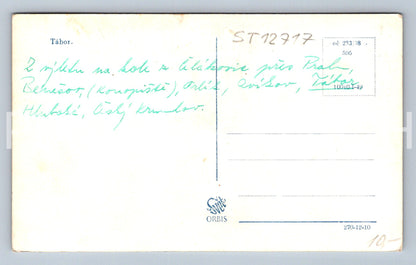 Tábor.
ST12717
Z výletu na kole z Čelákovic přes Prahu,
Benešov, (Konopiště), Orlík, Zvíkov, Tábor,
Hluboká, Český Krumlov.
ORBIS
270-12-10
10,-